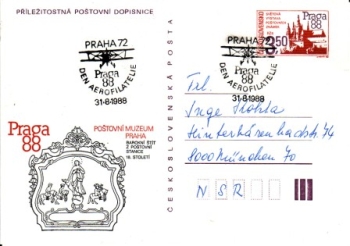 PŘÍLEŽITOSTNÁ POŠTOVNÍ DOPISNICE
PRAHA 72
Praga
88
DEN AEROFILATELIE
31-8-1988
PRAHA 72
Praga
88
DEN AEROFILATELIE
31-8-1988
Praga
88
3.50
ČESKOSLOVENSKÁ POŠTA
Praga
88
POŠTOVNÍ MUZEUM
PRAHA
BAROKNÍ ŠTÍT
Z POŠTOVNÍ
STANICE
18. STOLETÍ
Frl.
Inge
8000 München 70
NSR